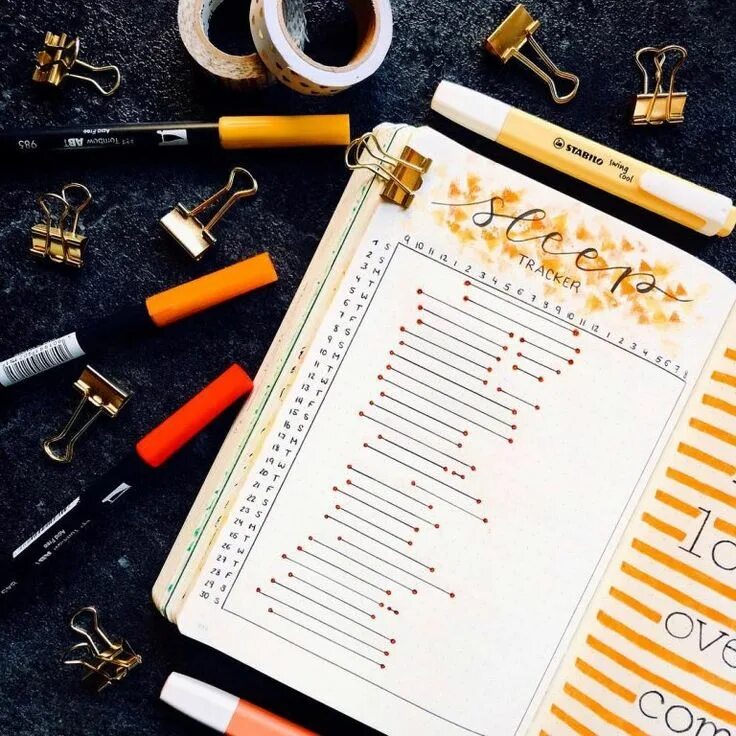 985 Tombow ABT Acid Free
STABILO swing cool
sleep
TRACKER
9 10 11 12 1 2 3 4 5 6 7 8 9 10 11 12 1 2 3 4 5 6 7 8
1 S
2 S
3 M
4 T
5 W
6 T
7 F
8 S
9 S
10 M
11 T
12 W
13 T
14 F
15 S
16 S
17 M
18 T
19 W
20 T
21 F
22 S
23 S
24 M
25 T
26 W
27 T
28 F
29 S
30 S
Acid Free
lo
ove
com